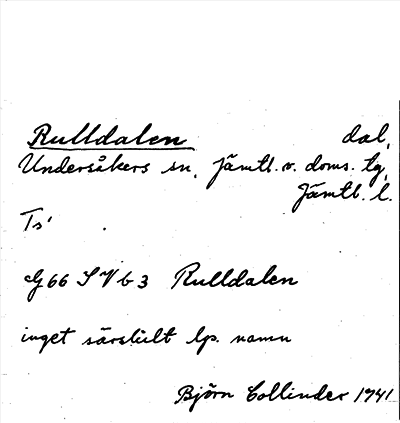 Rulldalen dal,
Undersåkers sn, Jämtl. v. doms. tg,
Jämtl. l.
Ts'
G 66 S V b 3 Rulldalen
inget särskilt lp. namn
Björn Collinder 1941